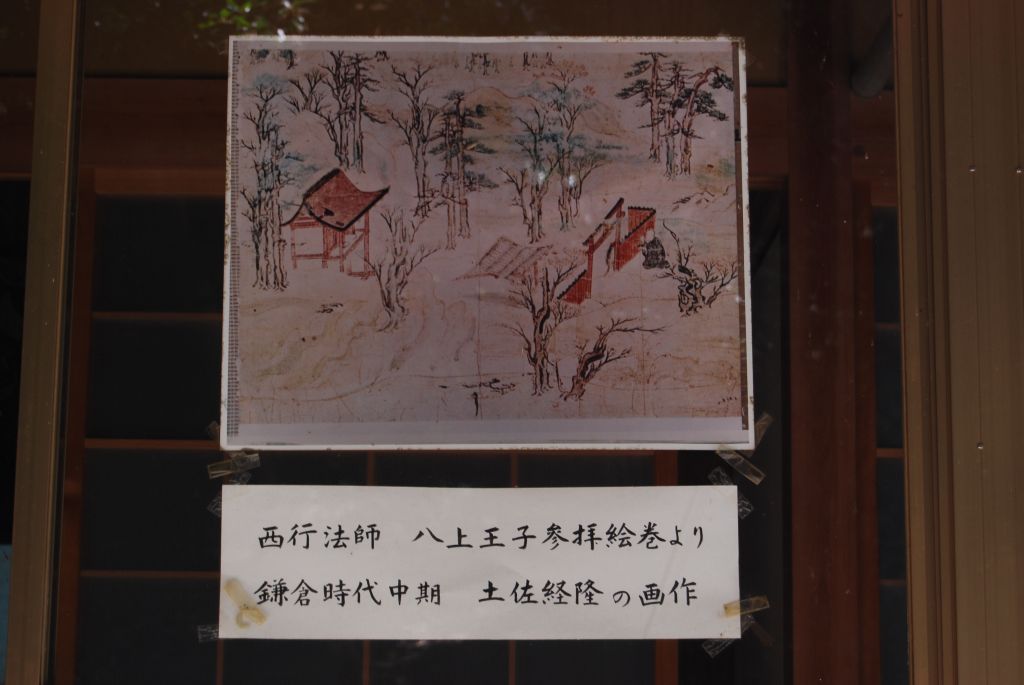 西行法師　八上王子参拝絵巻より
鎌倉時代中期　土佐経隆の画作